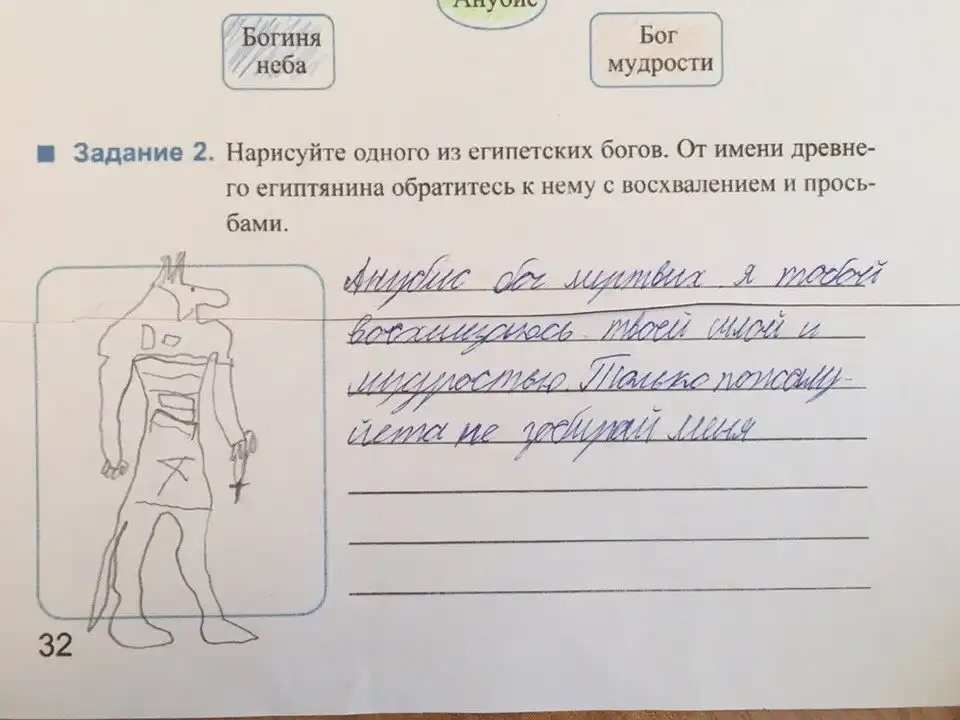 Анубис
Богиня
неба
Бог
мудрости
Задание 2. Нарисуйте одного из египетских богов. От имени древне-
го египтянина обратитесь к нему с восхвалением и прось-
бами.
Анубис бог мертвых я тобой
восхищаюсь твоей силой и
мудростью. Только пожалу-
йста не забирай меня
32